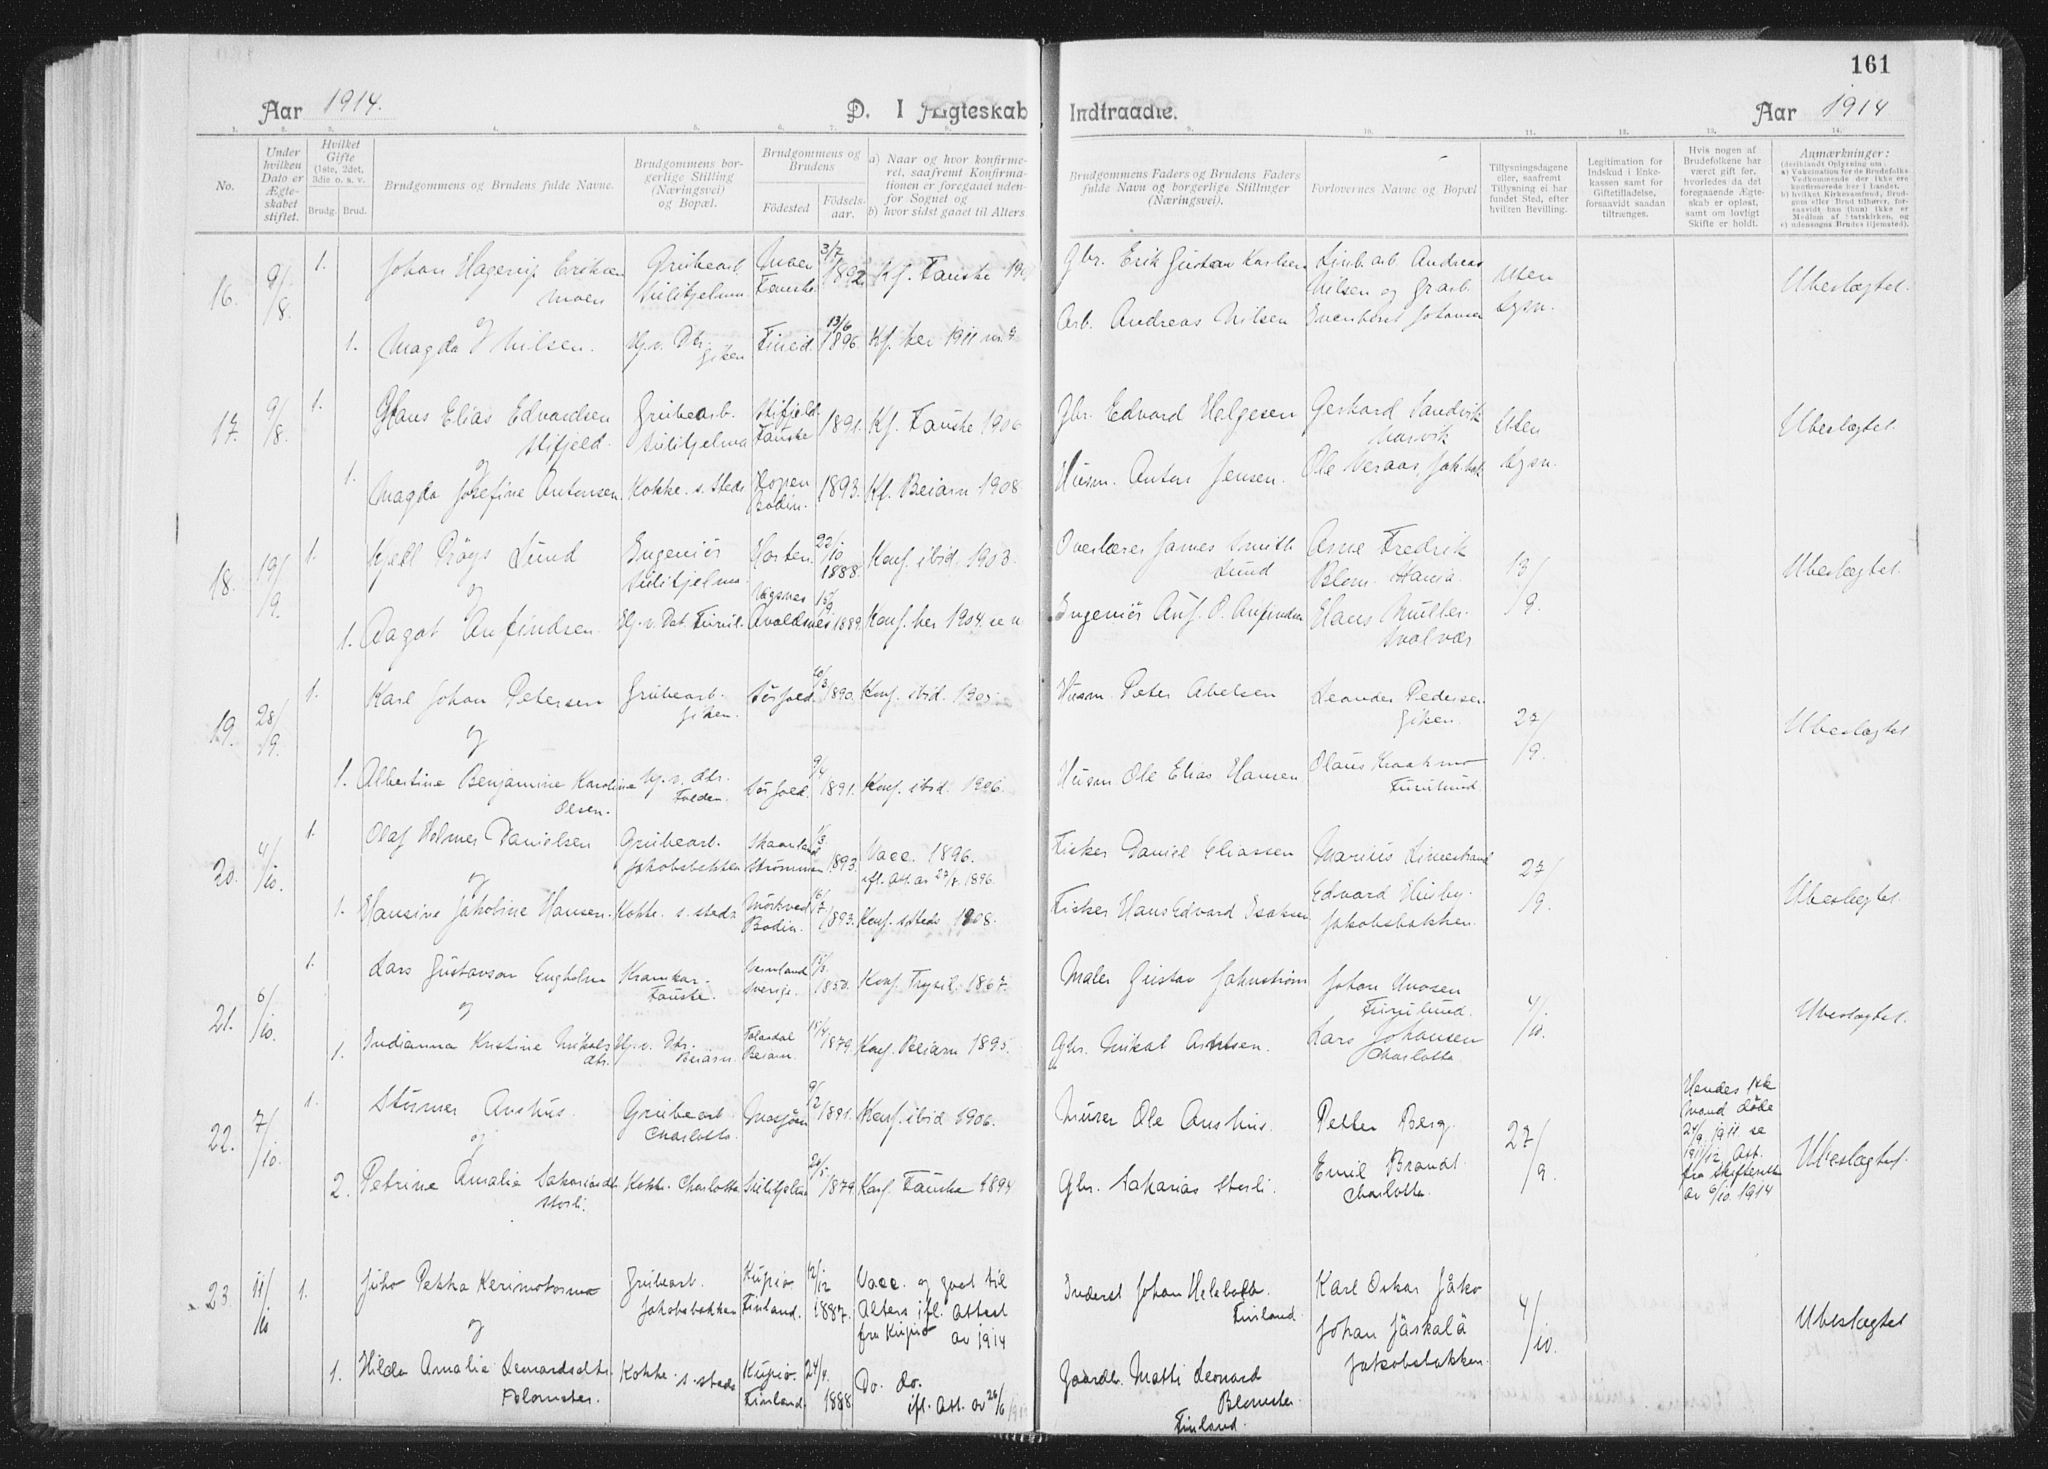 161
Aar 1914.
D. I Ægteskab Indtraadte.
Aar 1914
1. 2. 3. 4. 5. 6. 7. 8. 9. 10. 11. 12. 13. 14.
No.
Under hvilken Dato er Ægteskabet stiftet.
Hvilket Gifte (1ste, 2det, 3die o. s. v.
Brudg. Brud.
Brudgommens og Brudens fulde Navne.
Brudgommens borgerlige Stilling (Næringsvei) og Bopæl.
Brudgommens og Brudens
Fødested
Fødselsaar.
a) Naar og hvor konfirmeret, saafremt Konfirmationen er foregaaet udenfor Sognet og
b) hvor sidst gaaet til Alters
Brudgommens Faders og Brudens Faders fulde Navn og borgerlige Stillinger (Næringsvei).
Forlovernes Navne og Bopæl
Tillysningsdagene eller, saafremt Tillysning ei har fundet Sted, efter hvilken Bevilling.
Legitimation for Indskud i Enkekassen samt for Giftetilladelse, forsaavidt saadan tiltrænges.
Hvis nogen af Brudefolkene har været gift før, hvorledes da det foregaaende Ægteskab er opløst, samt om lovligt Skifte er holdt.
Anmærkninger:
(deriblandt Oplysning om:
a) Vakcination for de Brudefolks Vedkommende der ikke ere konfirmerede her i Landet.
b) hvilket Kirkesamfund, Brudgom eller Brud tilhører, forsaavidt han (hun) ikke er Medlem af Statskirken, og
c) udensogns Brudes Hjemsted).
16. 9/8. 1. Johan Hagerup Eriksen Moen Grubearb. Sulitjelma Moen Fauske 3/7 1892 Kf. Fauske Gbr. Erik Gustav Karlsen Linb. arb. Andreas Nilsen og Grarb. Uten Lysn. Ubeslægtet.
og
1. Magda Nilsen. Hj.v. Dtr. Giken Fineid. 13/6 1896. Kf. her 1911 Arb. Andreas Nilsen Johansen
17. 9/8. 1. Hans Elias Edvardsen Stifjeld. Grubearb. Sulitjelma Stifjeld Fauske 1891. Kf. Fauske 1906 Gbr. Edvard Helgesen Gerhard Sandvik Uten Lysn. Ubeslægtet
og
1. Magda Josefine Antonsen Kokke s. steds Hopen Bodin. 1893. Kf. Beiarn 1908 Husm. Anton Jensen. Ole Jakbak.
18. 19/9. 1. Kjell Prøys Lund Engeniør Sulitjelma Horten. 22/10 1888. Konf. ibid. 1903. Overlærer James Smith Lund Arne Fredrik Blom 13/9. Ubeslægtet.
og
1. Aagot Anfindsen Hj.v. Dat. Furul. Vagsnes Avaldsnes 15/9 1889. Konf. her 1904. Ingeniør Anf. O. Anfindsen Hans Müller Svolvær
19. 28/9. 1. Karl Johan Petersen Grubearb. Giken. Sørfold. 20/3 1890. Konf. ibid. 1905. Husm. Peter Abelsen Leander Pedersen Giken. 27/9. Ubeslægtet
og
1. Albertine Benjamine Karoline Olsen. Hj.v. dtr. Folden. Sørfold. 9/4 1891. Konf. ibid. 1906. Husm. Ole Elias Hansen Olaus Kraakmo Furulund.
20. 4/10. 1. Olaf Holmer Danielsen Grubearb. Jakobsbakken Skaanland Strømmen 1/3 1893. Vacc. 1896. ifl. Att. av 27/7. 1896. Fisker Daniel Eliassen Marius Limestrand 27/9. Ubeslægtet.
og
1. Hansine Jakobine Hansen. Kokke s. steds Mørkved Bodin. 16/7 1893. Konf. s. steds 1908. Fisker Hans Edvard Isaksen Edvard Husby. Jakobsbakken.
21. 6/10. 1. Lars Gustavson Engholm Kramkar. Fauske. Vermland Sverige. 1850. Konf. Trysil 1867. Maler Gustav Jahnstrøm Johan Furulund. 4/10. Ubeslægtet.
og
1. Indianna Kristine Mikals dtr. Hj.v. Dtr. Beiarn Tolladal Beiarn. 15/4 1879 Konf. Beiarn 1895. Gbr. Mikal Arntsen. Lars Johansen Charlotta
22. 7/10. 1. Sturmer Aushus. Grubearb. Charlotta. Mosjøen 9/2 1891. Konf. ibid 1906. Murer Ole Aushus. Petter Berg. 27/9. Hendes 1ste Mand døde 24/9 1911 se 1911/12. Att. fra Skifterett av 6/10. 1914 Ubeslægtet.
og
2. Petrine Amalie Sakariasdtr. Storli. Kokke. Charlotta Sulitjelma 20/5 1879 Konf. Fauske 1894 Gbr. Sakarias Storli. Emil Brandt. Charlotta.
23 11/10 1. Juho Pekka Kerimotosmo Grubearb. Jakobsbakken Kupio. Finland. 12/12 1887. Vacc. og gaat til Alters ifl. Attest fra Kupio av 1914 Inderst Johan Finland. Karl Oskar Jåko 4/10. Ubeslægtet
og
1. Hilda Amalie Leonardsdtr. Blomster. Kokke s. steds Kupio. Finland. 24/4. 1888 Do. do. ifl. Att. av 26/6 Gaardbr. Matti Leonard Blomster Finland. Johan Jåskalå Jakobsbakken.